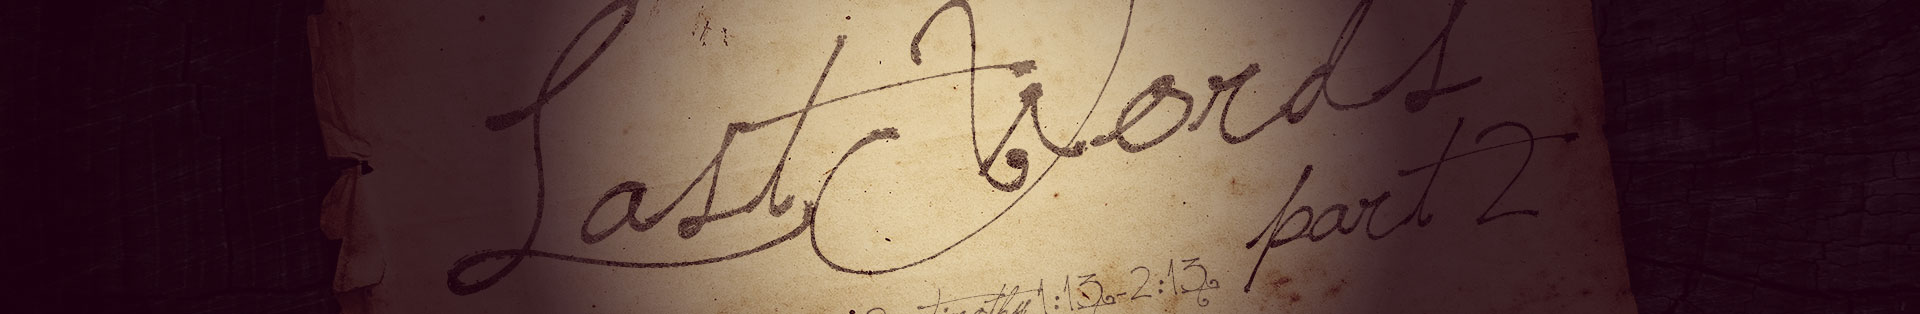 Last Words
part 2
Timothy 1:13-2:13